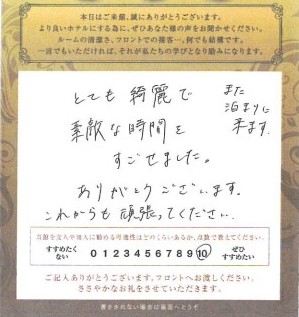 本日はご来館、誠にありがとうございます。
より良いホテルにする為に、ぜひあなた様の声をお聞かせください。
ルームの清潔さ、フロントでの接客…、何でも結構です。
一言でもいただければ、それが私たちの学びとなり励みになります。
とても綺麗で
素敵な時間を
すごせました。
ありがとうございます。
これからも頑張ってください。
また
泊まりに
来ます。
当館を友人や知人に勧める可能性はどのくらいあるか、点数で教えてください。
すすめたくない 0 1 2 3 4 5 6 7 8 9 10 ぜひすすめたい
ご記入ありがとうございます。フロントへお渡しください。
ささやかなお礼をさせていただきます。
書ききれない場合は裏面へどうぞ